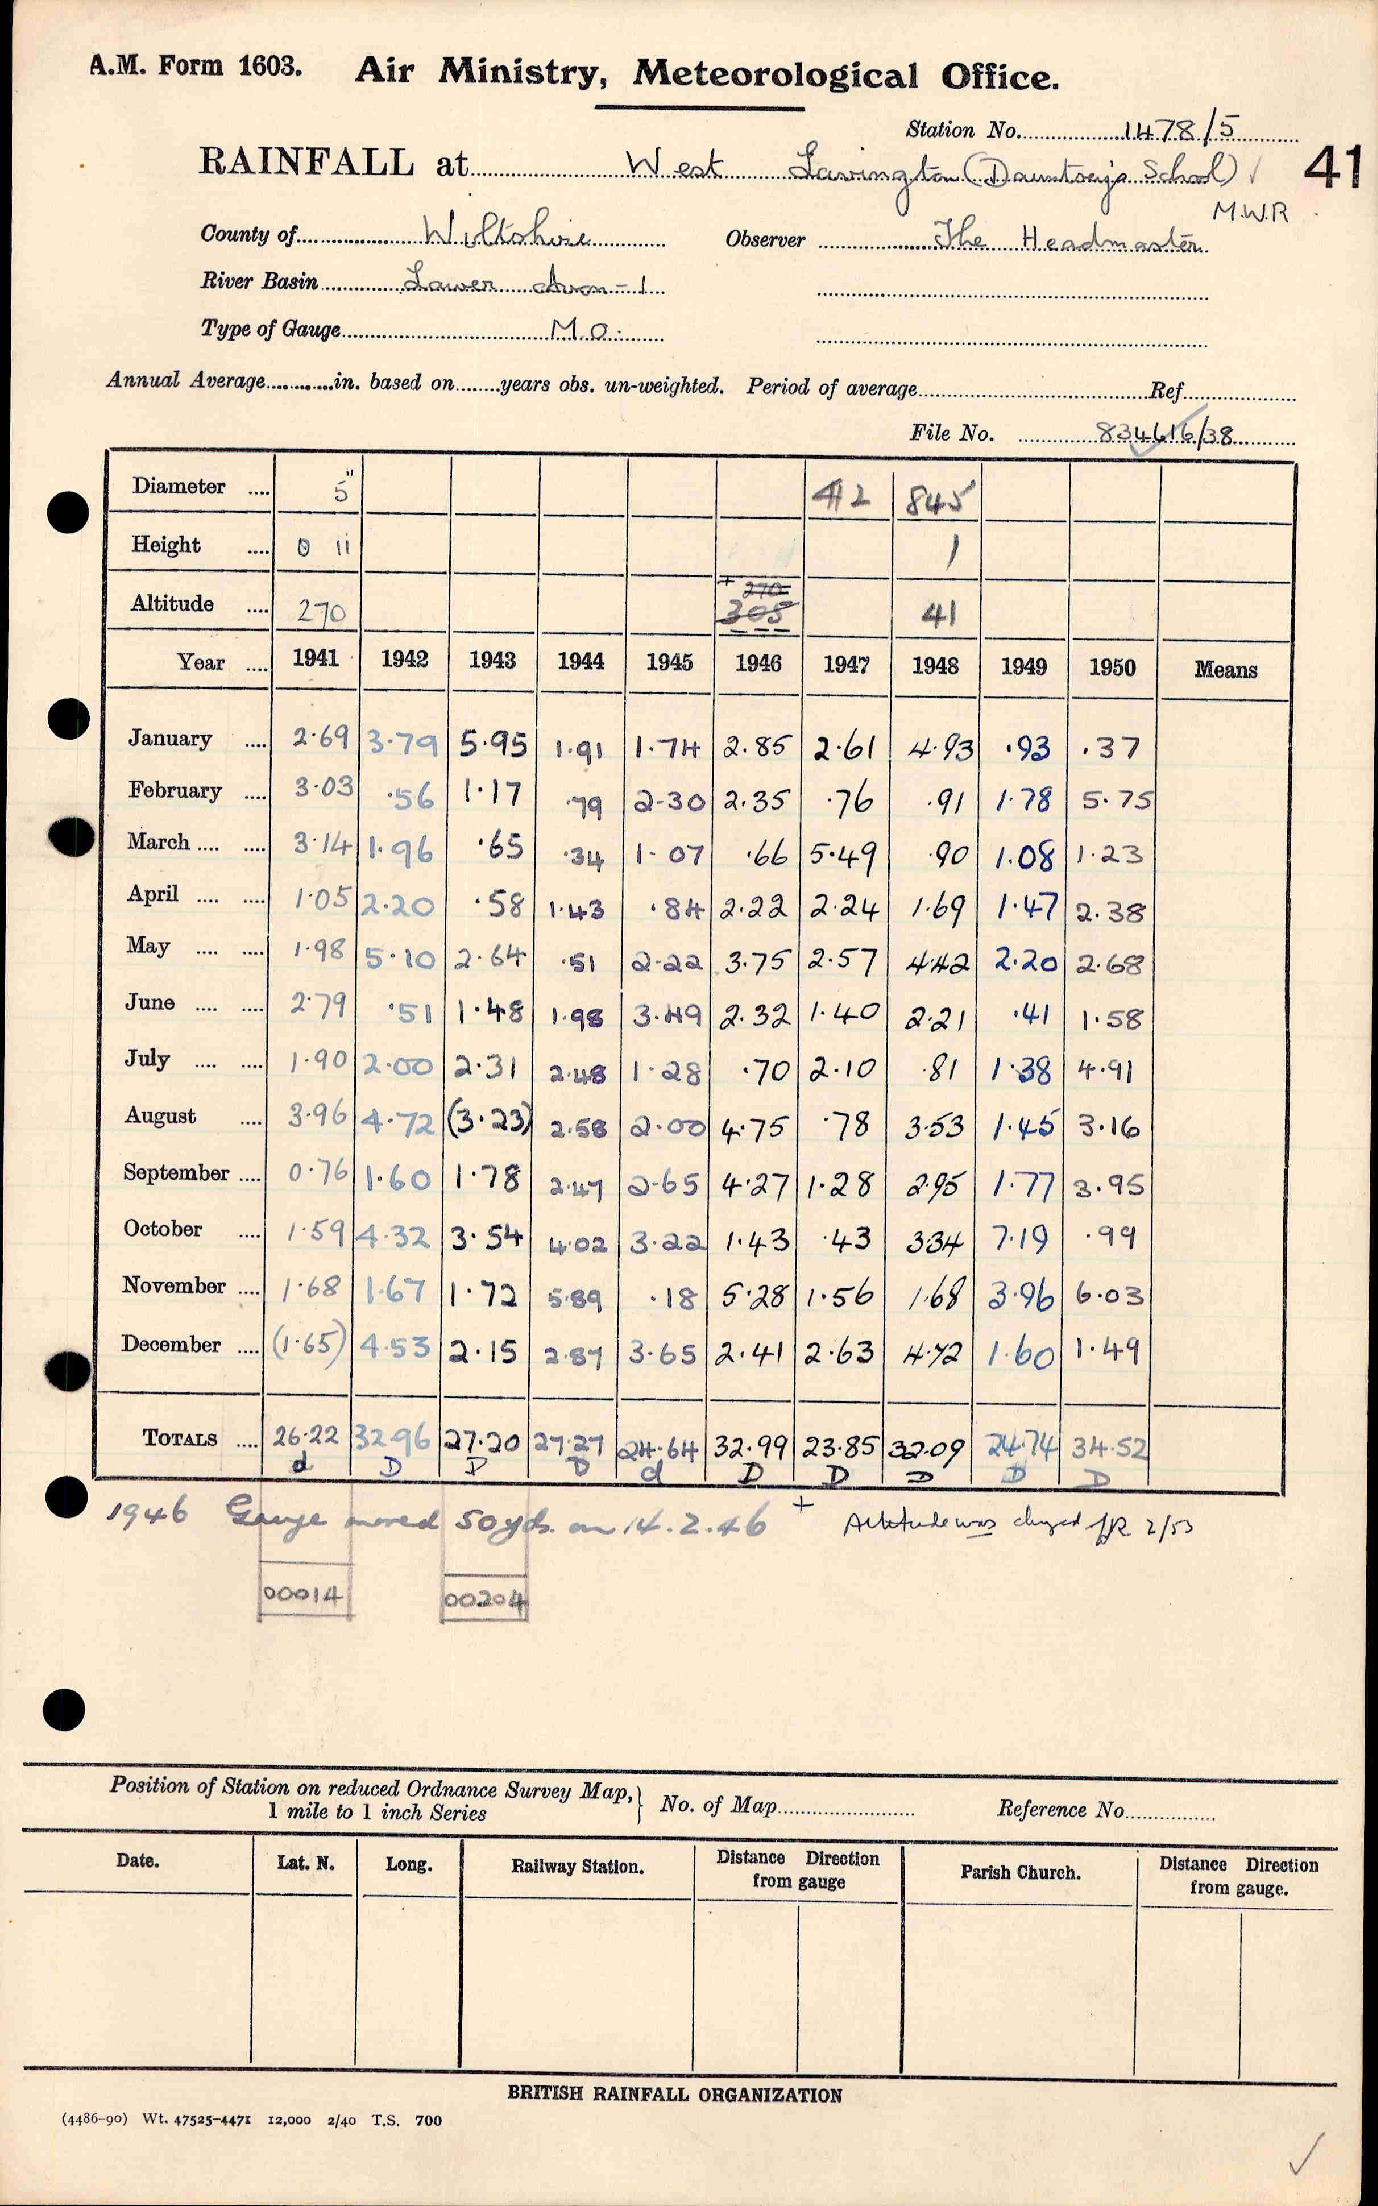 A.M. Form 1603. Air Ministry, Meteorological Office.
Station No. 1478/5
RAINFALL at West Lavington (Dauntsey's School) 41
M.W.R
County of Wiltshire Observer The Headmaster
River Basin Lower Avon-1
Type of Gauge M.O.
Annual Average in. based on years obs. un-weighted. Period of average Ref
File No. 834616/38
Diameter 5" 412 845
Height 0 11 1
Altitude 270 + 270 305 41
Year 1941 1942 1943 1944 1945 1946 1947 1948 1949 1950 Means
January 2.69 3.79 5.95 1.91 1.74 2.85 2.61 4.93 .93 .37
February 3.03 .56 1.17 .79 2.30 2.35 .76 .91 1.78 5.75
March 3.14 1.96 .65 .34 1.07 .66 5.49 .90 1.08 1.23
April 1.05 2.20 .58 1.43 .84 2.22 2.24 1.69 1.47 2.38
May 1.98 5.10 2.64 .51 2.22 3.75 2.57 4.42 2.20 2.68
June 2.79 .51 1.48 1.98 3.49 2.32 1.40 2.21 .41 1.58
July 1.90 2.00 2.31 2.48 1.28 .70 2.10 .81 1.38 4.91
August 3.96 4.72 (3.23) 2.58 2.00 4.75 .78 3.53 1.45 3.16
September 0.76 1.60 1.78 2.47 2.65 4.27 1.28 2.95 1.77 3.95
October 1.59 4.32 3.54 4.02 3.22 1.43 .43 3.34 7.19 .99
November 1.68 1.67 1.72 5.89 .18 5.28 1.56 1.68 3.96 6.03
December (1.65) 4.53 2.15 2.87 3.65 2.41 2.63 4.72 1.60 1.49
TOTALS 26.22 32.96 27.20 27.27 24.64 32.99 23.85 32.09 24.74 34.52
d D D D d D D D D D
1946 Gauge moved 50 yds. on 14.2.46 + Altitude was changed 2/53
00014 00204
Position of Station on reduced Ordnance Survey Map, } No. of Map Reference No.
1 mile to 1 inch Series
Date. Lat. N. Long. Railway Station. Distance Direction from gauge Parish Church. Distance Direction from gauge.
BRITISH RAINFALL ORGANIZATION
(4486-90) Wt. 47525-4471 12,000 2/40 T.S. 700